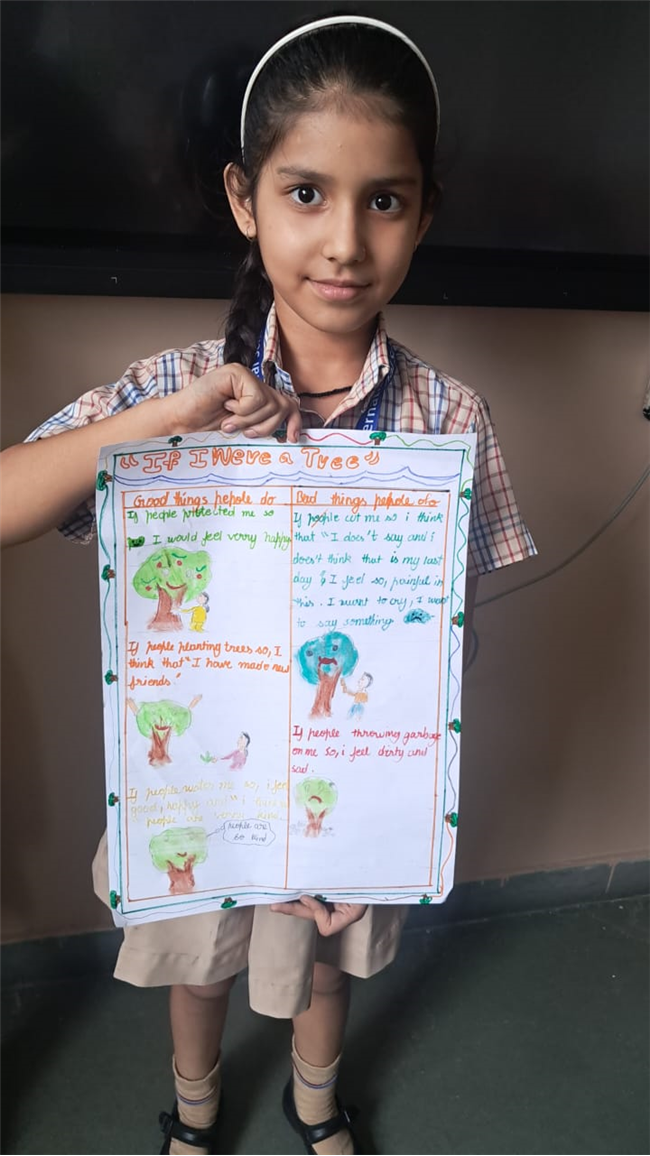 "If I Were a Tree"
Good things pepole do
If people protected me so
I would feel verry happy
If people planting trees so, I
think that "I have made new
friends."
If people water me so, i feel
good, happy and " i think
people are verry kind.
people are
so kind
Bad things pepole do
If people cut me so i think
that "I does't say and i
does't think that is my last
day & I feel so, painful in
this. I want to cry, I want
to say something
If people throwing garbage
on me so, i feel dirty and
sad.